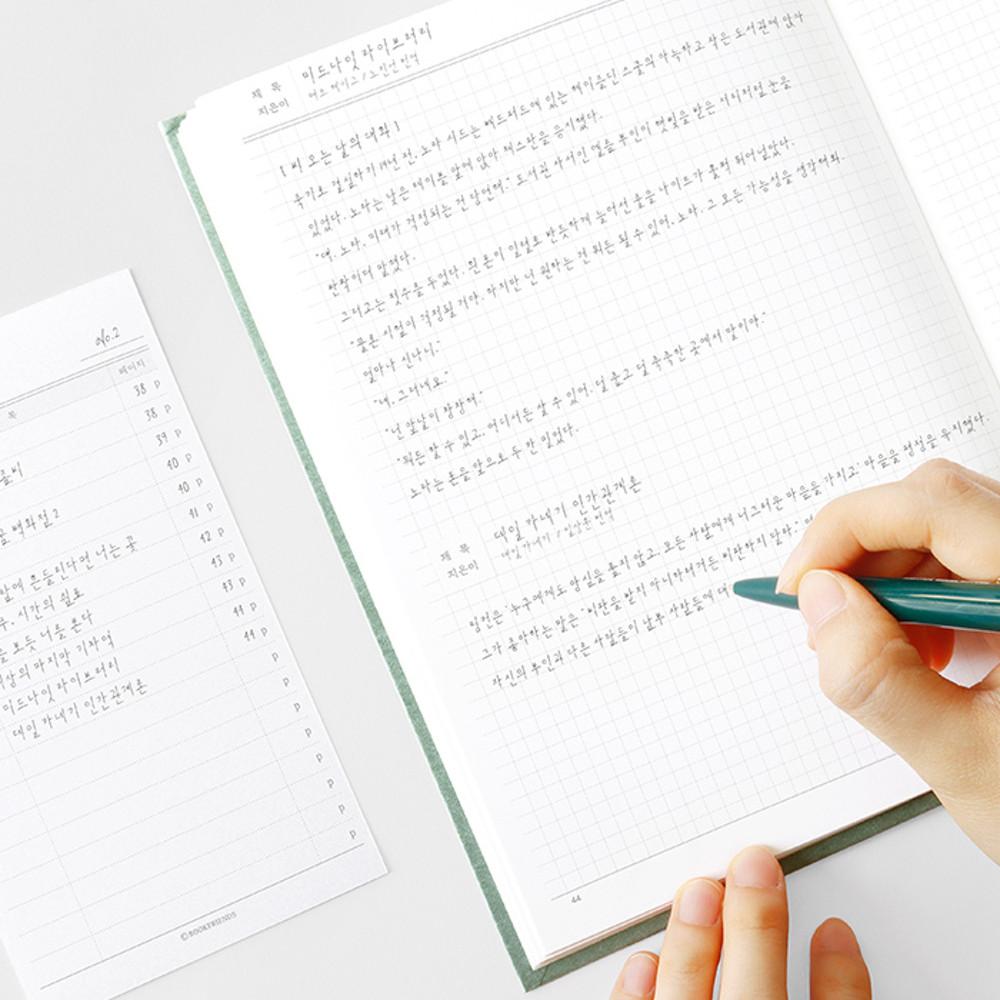 No.2
목
페이지
38 p
38 p
39 p
40 p
40 p
41 p
42 p
43 p
43 p
44 p
44 p
p
p
p
p
p
p
p
p
골 백화점 2
말에 흔들린다면 너는 꽃
시간의 쉼표
보듯 너를 본다
세상의 마지막 기차역
미드나잇 라이브러리
데일 카네기 인간관계론
©BOOKFRIENDS
제 목
미드나잇 라이브러리
지은이
매트 헤이그 / 노진선 번역
[ 비 오는 날의 대화 ]
죽기로 결심하기 19년 전, 노라 시드는 베드퍼드에 있는 헤이즐딘 스쿨의 아늑하고 작은 도서관에 앉아
있었다. 노라는 낮은 테이블 앞에 앉아 체스판을 응시했다.
"얘, 노라, 미래가 걱정되는 건 당연해." 도서관 사서인 엘름 부인이 햇빛을 받은 서리처럼 눈을
반짝이며 말했다.
그러고는 첫수를 두었다. 흰 폰이 일렬로 반듯하게 늘어선 줄을 나이트가 훌쩍 뛰어넘었다.
"물론 시험이 걱정될 거야. 하지만 넌 원하는 건 뭐든 될 수 있어, 노라. 그 모든 가능성을 생각해봐.
얼마나 신나니."
"네, 그러네요."
"넌 앞날이 창창해."
"뭐든 할 수 있고, 어디서든 살 수 있어. 덜 춥고 덜 축축한 곳에서 말이야."
노라는 폰을 앞으로 두 칸 밀었다.
제 목
데일 카네기 인간관계론
지은이
데일 카네기 / 임상훈 번역
링컨은 '누구에게도 앙심을 품지 않고, 모든 사람에게 너그러운 마음을 가지고' 마음을 평정을 유지했다.
그가 좋아하는 말은 "비판을 받지 아니하려거든 비판하지 말라."
자신의 부인과 다른 사람들이 남부 사람들에 대
44